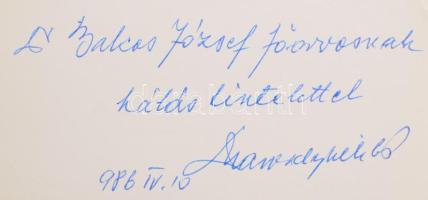 Dr Bakos József főorvosnak
hálás tisztelettel
986 IV. 10